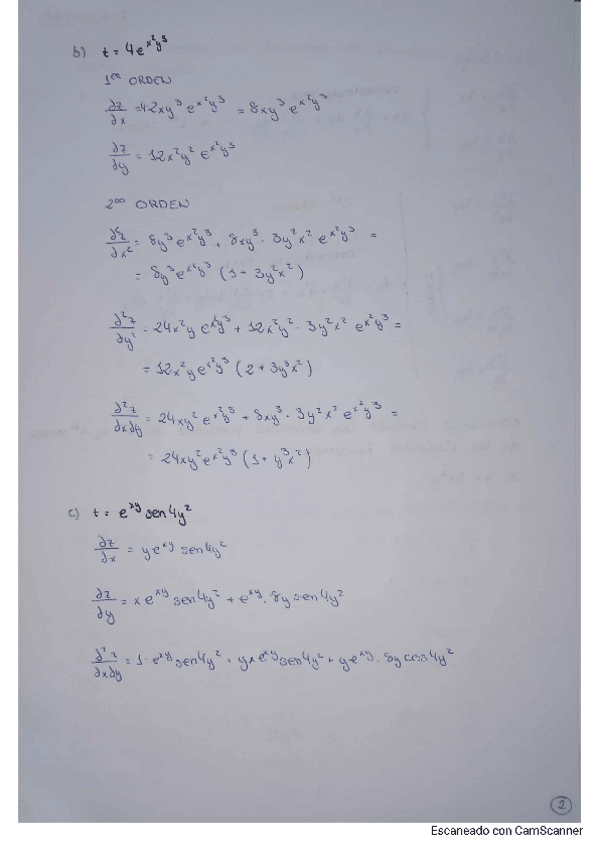 b) z = 4e^{x²y³}
1er ORDEN
∂z/∂x = 4·2xy³ e^{x²y³} = 8xy³ e^{x²y³}
∂z/∂y = 12x²y² e^{x²y³}
2do ORDEN
∂²z/∂x² = 8y³ e^{x²y³} + 8xy³ · 3y²x² e^{x²y³} =
= 8y³ e^{x²y³} (1 + 3y²x²)
∂²z/∂y² = 24x²y e^{x²y³} + 12x²y² · 3y²x² e^{x²y³} =
= 12x²y e^{x²y³} (2 + 3y³x²)
∂²z/∂x∂y = 24xy² e^{x²y³} + 8xy³ · 3y²x² e^{x²y³} =
= 24xy² e^{x²y³} (1 + y³x²)
c) z = e^{xy} sen 4y²
∂z/∂x = y e^{xy} sen 4y²
∂z/∂y = x e^{xy} sen 4y² + e^{xy} · 8y sen 4y²
∂²z/∂x∂y = 1 · e^{xy} sen 4y² + yx e^{xy} sen 4y² + y e^{xy} · 8y cos 4y²
2
Escaneado con CamScanner